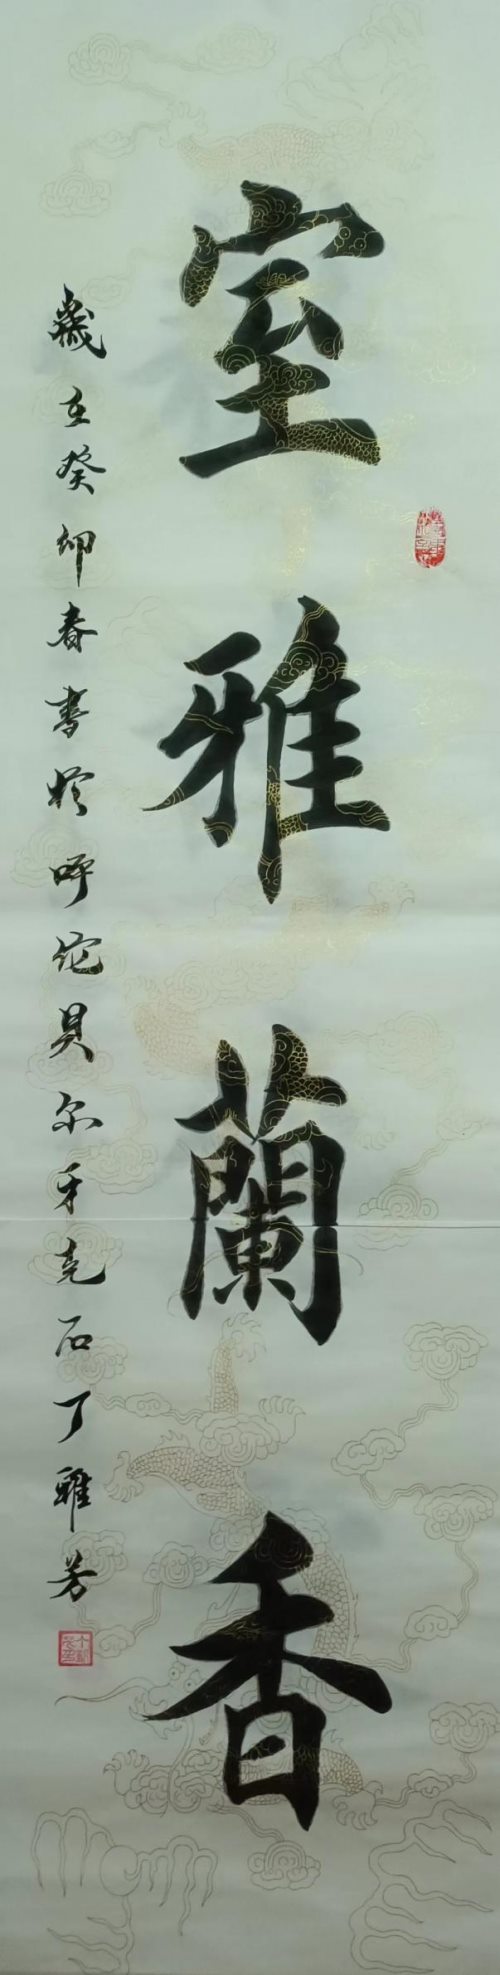 室雅蘭香
歲在癸卯春書於呼倫貝尔牙克石丁雅芳